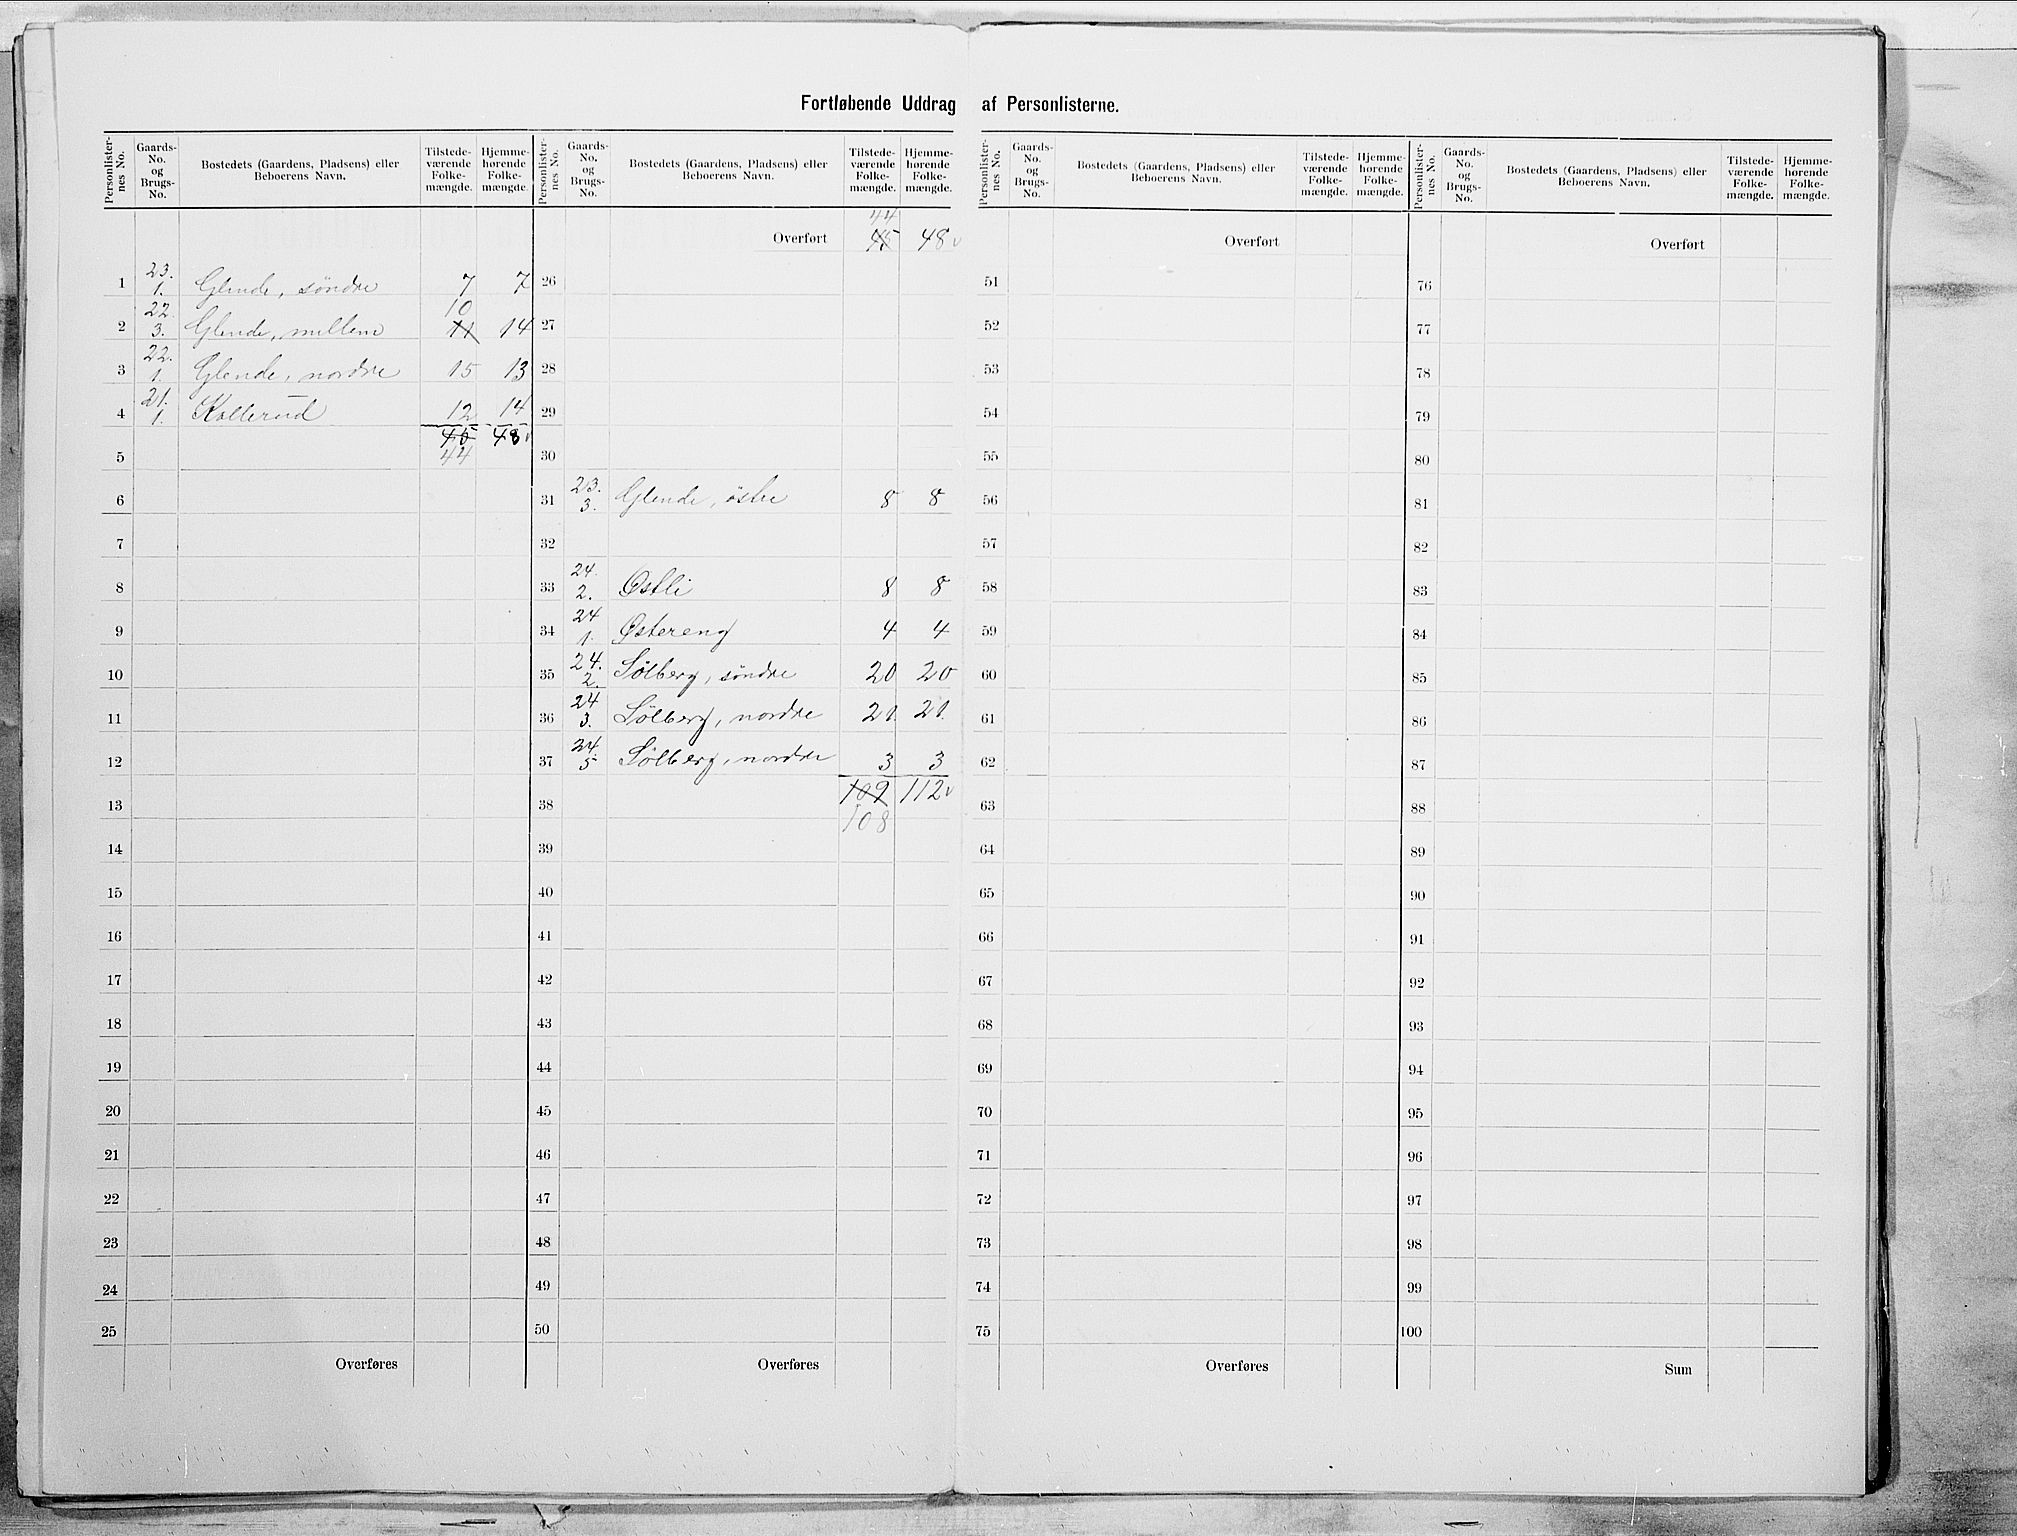 Fortløbende Uddrag af Personlisterne.
Personlisternes No. | Gaards-No. og Brugs-No. | Bostedets (Gaardens, Pladsens) eller Beboerens Navn. | Tilstedeværende Folkemængde. | Hjemmehørende Folkemængde.
1 | 23. 1. | Glende, söndre | 7 | 7
2 | 22. 3. | Glende, mellem | 10 11 | 14
3 | 22. 1. | Glende, nordre | 15 | 13
4 | 21. 1. | Kollerud | 12 | 14
45 | 48
5 | 44
6
7
8
9
10
11
12
13
14
15
16
17
18
19
20
21
22
23
24
25
Overføres
Personlisternes No. | Gaards-No. og Brugs-No. | Bostedets (Gaardens, Pladsens) eller Beboerens Navn. | Tilstedeværende Folkemængde. | Hjemmehørende Folkemængde.
Overført | 44 45 | 48
26
27
28
29
30
31 | 23. 3. | Glende, östre | 8 | 8
32
33 | 24. 2. | Østli | 8 | 8
34 | 24 1. | Østereng | 4 | 4
35 | 24. 2. | Sölberg, söndre | 20 | 20
36 | 24 3. | Sölberg, nordre | 21. | 21.
37 | 24. 5 | Sölberg, nordre | 3 | 3
38 | 109 | 112
108
39
40
41
42
43
44
45
46
47
48
49
50
Overføres
Personlisternes No. | Gaards-No. og Brugs-No. | Bostedets (Gaardens, Pladsens) eller Beboerens Navn. | Tilstedeværende Folkemængde. | Hjemmehørende Folkemængde.
Overført
51
52
53
54
55
56
57
58
59
60
61
62
63
64
65
66
67
68
69
70
71
72
73
74
75
Overføres
Personlisternes No. | Gaards-No. og Brugs-No. | Bostedets (Gaardens, Pladsens) eller Beboerens Navn. | Tilstedeværende Folkemængde. | Hjemmehørende Folkemængde.
Overført
76
77
78
79
80
81
82
83
84
85
86
87
88
89
90
91
92
93
94
95
96
97
98
99
100
Sum